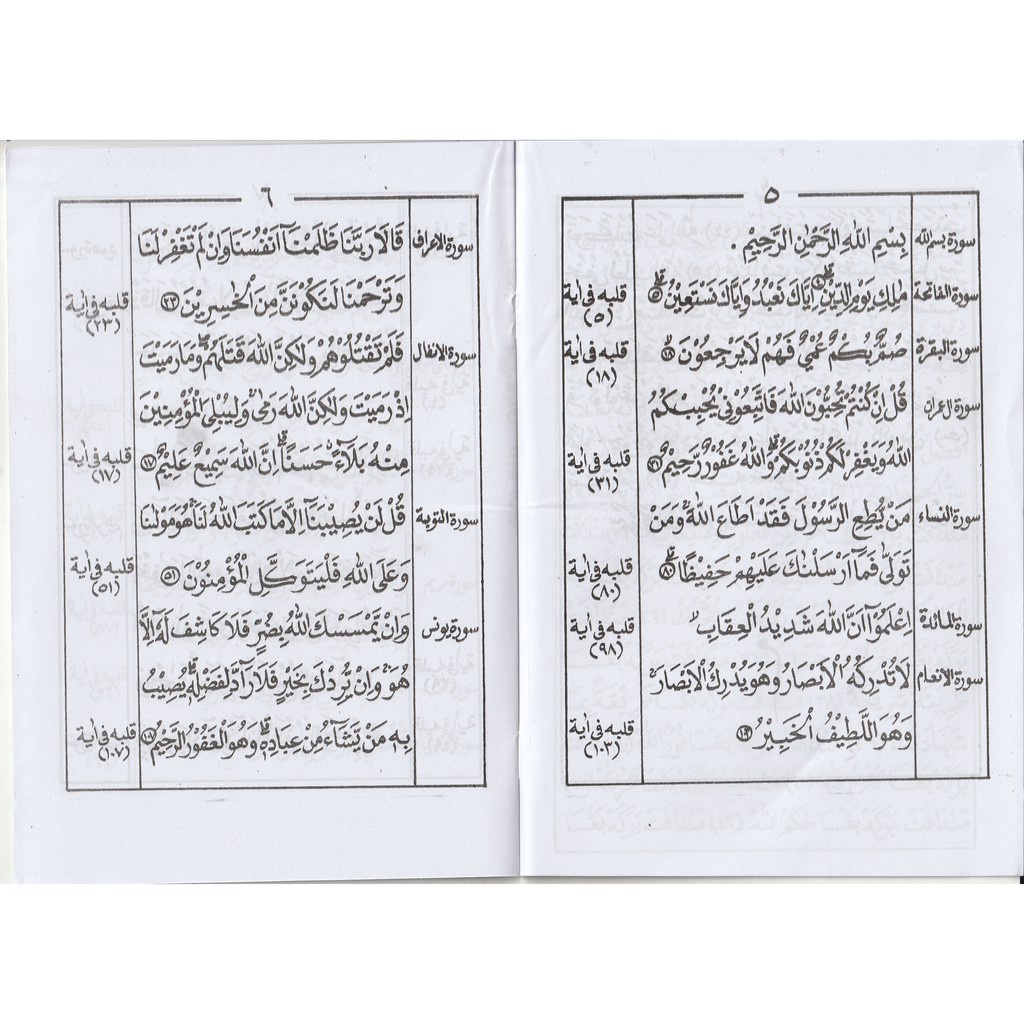 ٥
سورة بسم الله بِسْمِ اللهِ الرَّحْمٰنِ الرَّحِيْمِ .
سورة الفاتحة مٰلِكِ يَوْمِ الدِّيْنِ اِيَّاكَ نَعْبُدُ وَاِيَّاكَ نَسْتَعِيْنُ ٥ قلبه فى اية (٥)
سورة البقرة صُمٌّ بُكْمٌ عُمْيٌ فَهُمْ لَا يَرْجِعُوْنَ ١٨ قلبه فى اية (١٨)
سورة ال عمران قُلْ اِنْ كُنْتُمْ تُحِبُّوْنَ اللهَ فَاتَّبِعُوْنِيْ يُحْبِبْكُمُ
اللهُ وَيَغْفِرْ لَكُمْ ذُنُوْبَكُمْ وَاللهُ غَفُوْرٌ رَّحِيْمٌ ٣١ قلبه فى اية (٣١)
سورة النساء مَنْ يُّطِعِ الرَّسُوْلَ فَقَدْ اَطَاعَ اللهَ وَمَنْ
تَوَلّٰى فَمَآ اَرْسَلْنٰكَ عَلَيْهِمْ حَفِيْظًا ٨٠ قلبه فى اية (٨٠)
سورة المائدة اِعْلَمُوْآ اَنَّ اللهَ شَدِيْدُ الْعِقَابِ قلبه فى اية (٩٨)
سورة الانعام لَا تُدْرِكُهُ الْاَبْصَارُ وَهُوَ يُدْرِكُ الْاَبْصَارَ
وَهُوَ اللَّطِيْفُ الْخَبِيْرُ ١٠٣ قلبه فى اية (١٠٣)
٦
سورة الاعراف قَالَا رَبَّنَا ظَلَمْنَآ اَنْفُسَنَا وَاِنْ لَّمْ تَغْفِرْ لَنَا
وَتَرْحَمْنَا لَنَكُوْنَنَّ مِنَ الْخٰسِرِيْنَ ٢٣ قلبه فى اية (٢٣)
سورة الانفال فَلَمْ تَقْتُلُوْهُمْ وَلٰكِنَّ اللهَ قَتَلَهُمْ وَمَا رَمَيْتَ
اِذْ رَمَيْتَ وَلٰكِنَّ اللهَ رَمٰى وَلِيُبْلِيَ الْمُؤْمِنِيْنَ
مِنْهُ بَلَآءً حَسَنًا اِنَّ اللهَ سَمِيْعٌ عَلِيْمٌ ١٧ قلبه فى اية (١٧)
سورة التوبة قُلْ لَنْ يُصِيْبَنَآ اِلَّا مَا كَتَبَ اللهُ لَنَا هُوَ مَوْلٰنَا
وَعَلَى اللهِ فَلْيَتَوَكَّلِ الْمُؤْمِنُوْنَ ٥١ قلبه فى اية (٥١)
سورة يونس وَاِنْ يَّمْسَسْكَ اللهُ بِضُرٍّ فَلَا كَاشِفَ لَهٗٓ اِلَّا
هُوَ وَاِنْ يُّرِدْكَ بِخَيْرٍ فَلَا رَآدَّ لِفَضْلِهٖ يُصِيْبُ
بِهٖ مَنْ يَّشَآءُ مِنْ عِبَادِهٖ وَهُوَ الْغَفُوْرُ الرَّحِيْمُ ١٠٧ قلبه فى اية (١٠٧)